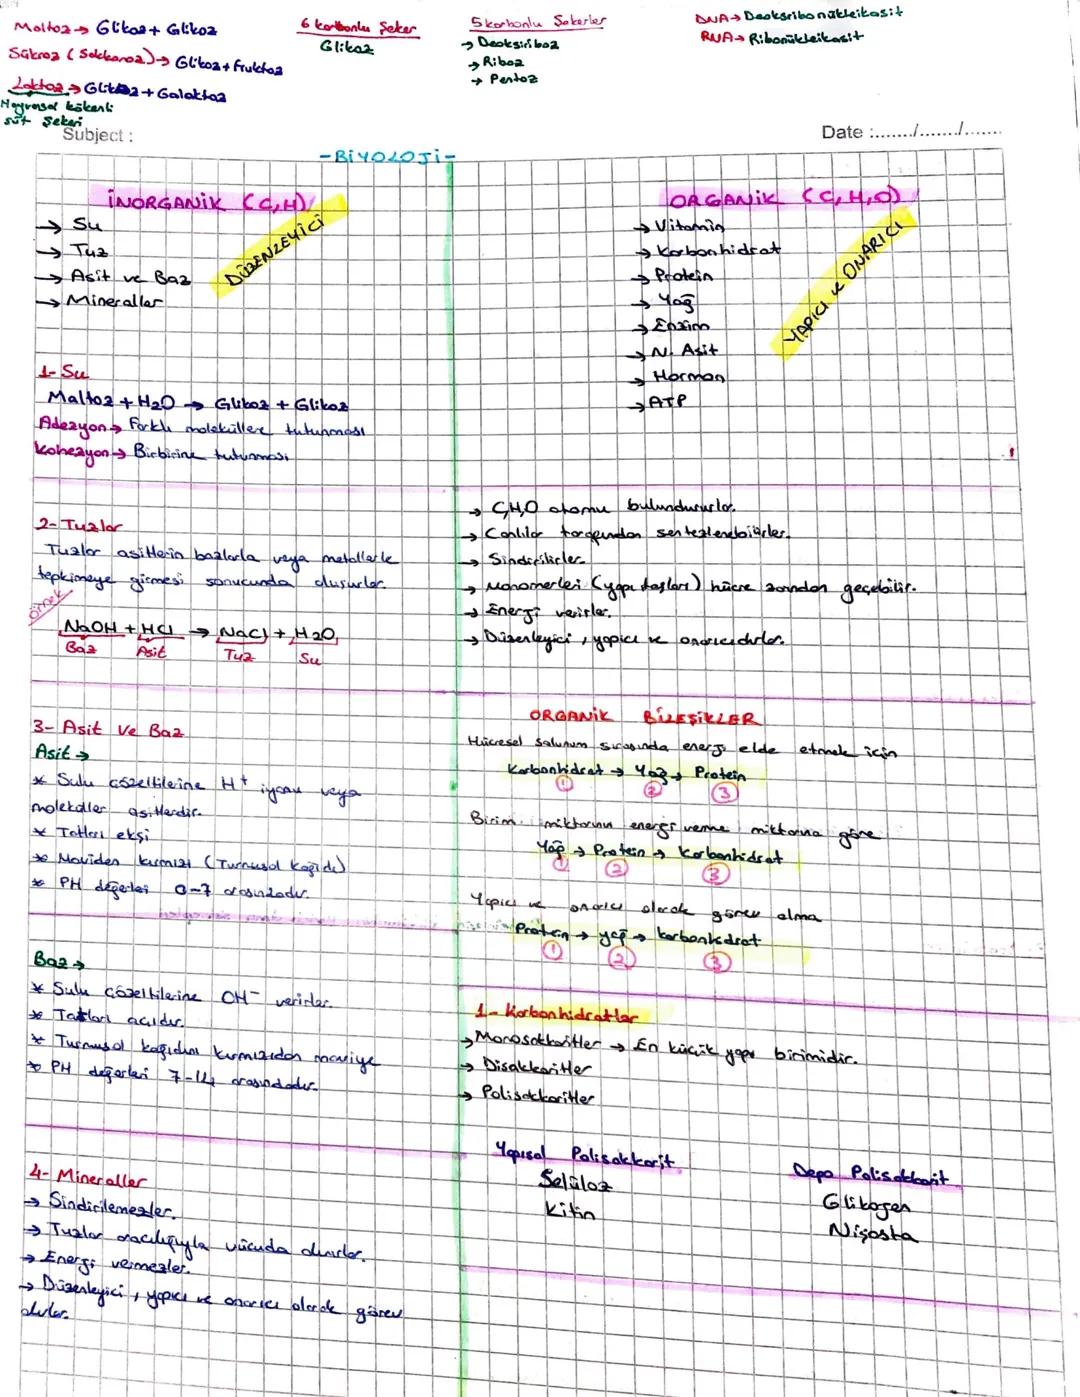 Maltoz → Glikoz + Glikoz
Sükroz (Sakkaroz) → Glikoz + Fruktoz
Laktoz → Glikoz + Galaktoz
Hayvansal kökenli
süt şekeri
6 karbonlu Şeker
Glikoz
5 karbonlu Şekerler
→ Deoksiriboz
→ Riboz
→ Pentoz
DNA → Deoksribonükleikasit
RNA → Ribonükleikasit
Subject :
Date :......./......./.......
-BİYOLOJİ-
İNORGANİK (C,H)
DÜZENZEYİCİ
→ Su
→ Tuz
→ Asit ve Baz
→ Mineraller
1- Su
Maltoz + H2O → Glikoz + Glikoz
Adezyon → Farklı moleküllere tutunması
Kohezyon → Birbirine tutunması
2- Tuzlar
Tuzlar asitlerin bazlarla veya metallerle
tepkimeye girmesi sonucunda oluşurlar.
Örnek
NaOH + HCl → NaCl + H2O
Baz Asit Tuz Su
3- Asit Ve Baz
Asit →
* Sulu çözeltilerine H+ iyonu veya
moleküller asitlerdir.
* Tatları ekşi
* Maviden kırmızı (Turnusol kağıdı)
* PH değerleri 0-7 arasındadır.
Baz →
* Sulu çözeltilerine OH- verirler.
* Tatları acıdır.
* Turnusol kağıdını kırmızıdan maviye
* PH değerleri 7-14 arasındadır.
4- Mineraller
→ Sindirilemezler.
→ Tuzlar aracılığıyla vücuda alınırlar.
→ Energi vermezler.
→ Düzenleyici, yapıcı ve onarıcı olarak görev
alırlar.
ORGANİK (C,H,O)
YAPICI ve ONARICI
→ Vitamin
→ Karbonhidrat
→ Protein
→ Yağ
→ Enzim
→ N. Asit
→ Hormon
→ ATP
→ C,H,O atomu bulundururlar.
→ Canlılar tarafından sentezlenebilirler.
→ Sindirilirler.
→ Monomerleri (yapı taşları) hücre zarından geçebilir.
→ Energi verirler.
→ Düzenleyici, yapıcı ve onarıcıdırlar.
ORGANİK BİLEŞİKLER
Hücresel solunum sırasında energi elde etmek için
Karbonhidrat → Yağ → Protein
1 2 3
Birim miktarının energi verme miktarına göre
Yağ → Protein → Karbonhidrat
1 2 3
Yapıcı ve onarıcı olarak görev alma
Protein → yağ → karbonhidrat
1 2 3
1- Karbonhidratlar
→ Monosakkaritler → En küçük yapı birimidir.
→ Disakkaritler
→ Polisakkaritler
Yapısal Polisakkarit
Selüloz
Kitin
Depo Polisakkarit
Glikogen
Nişasta